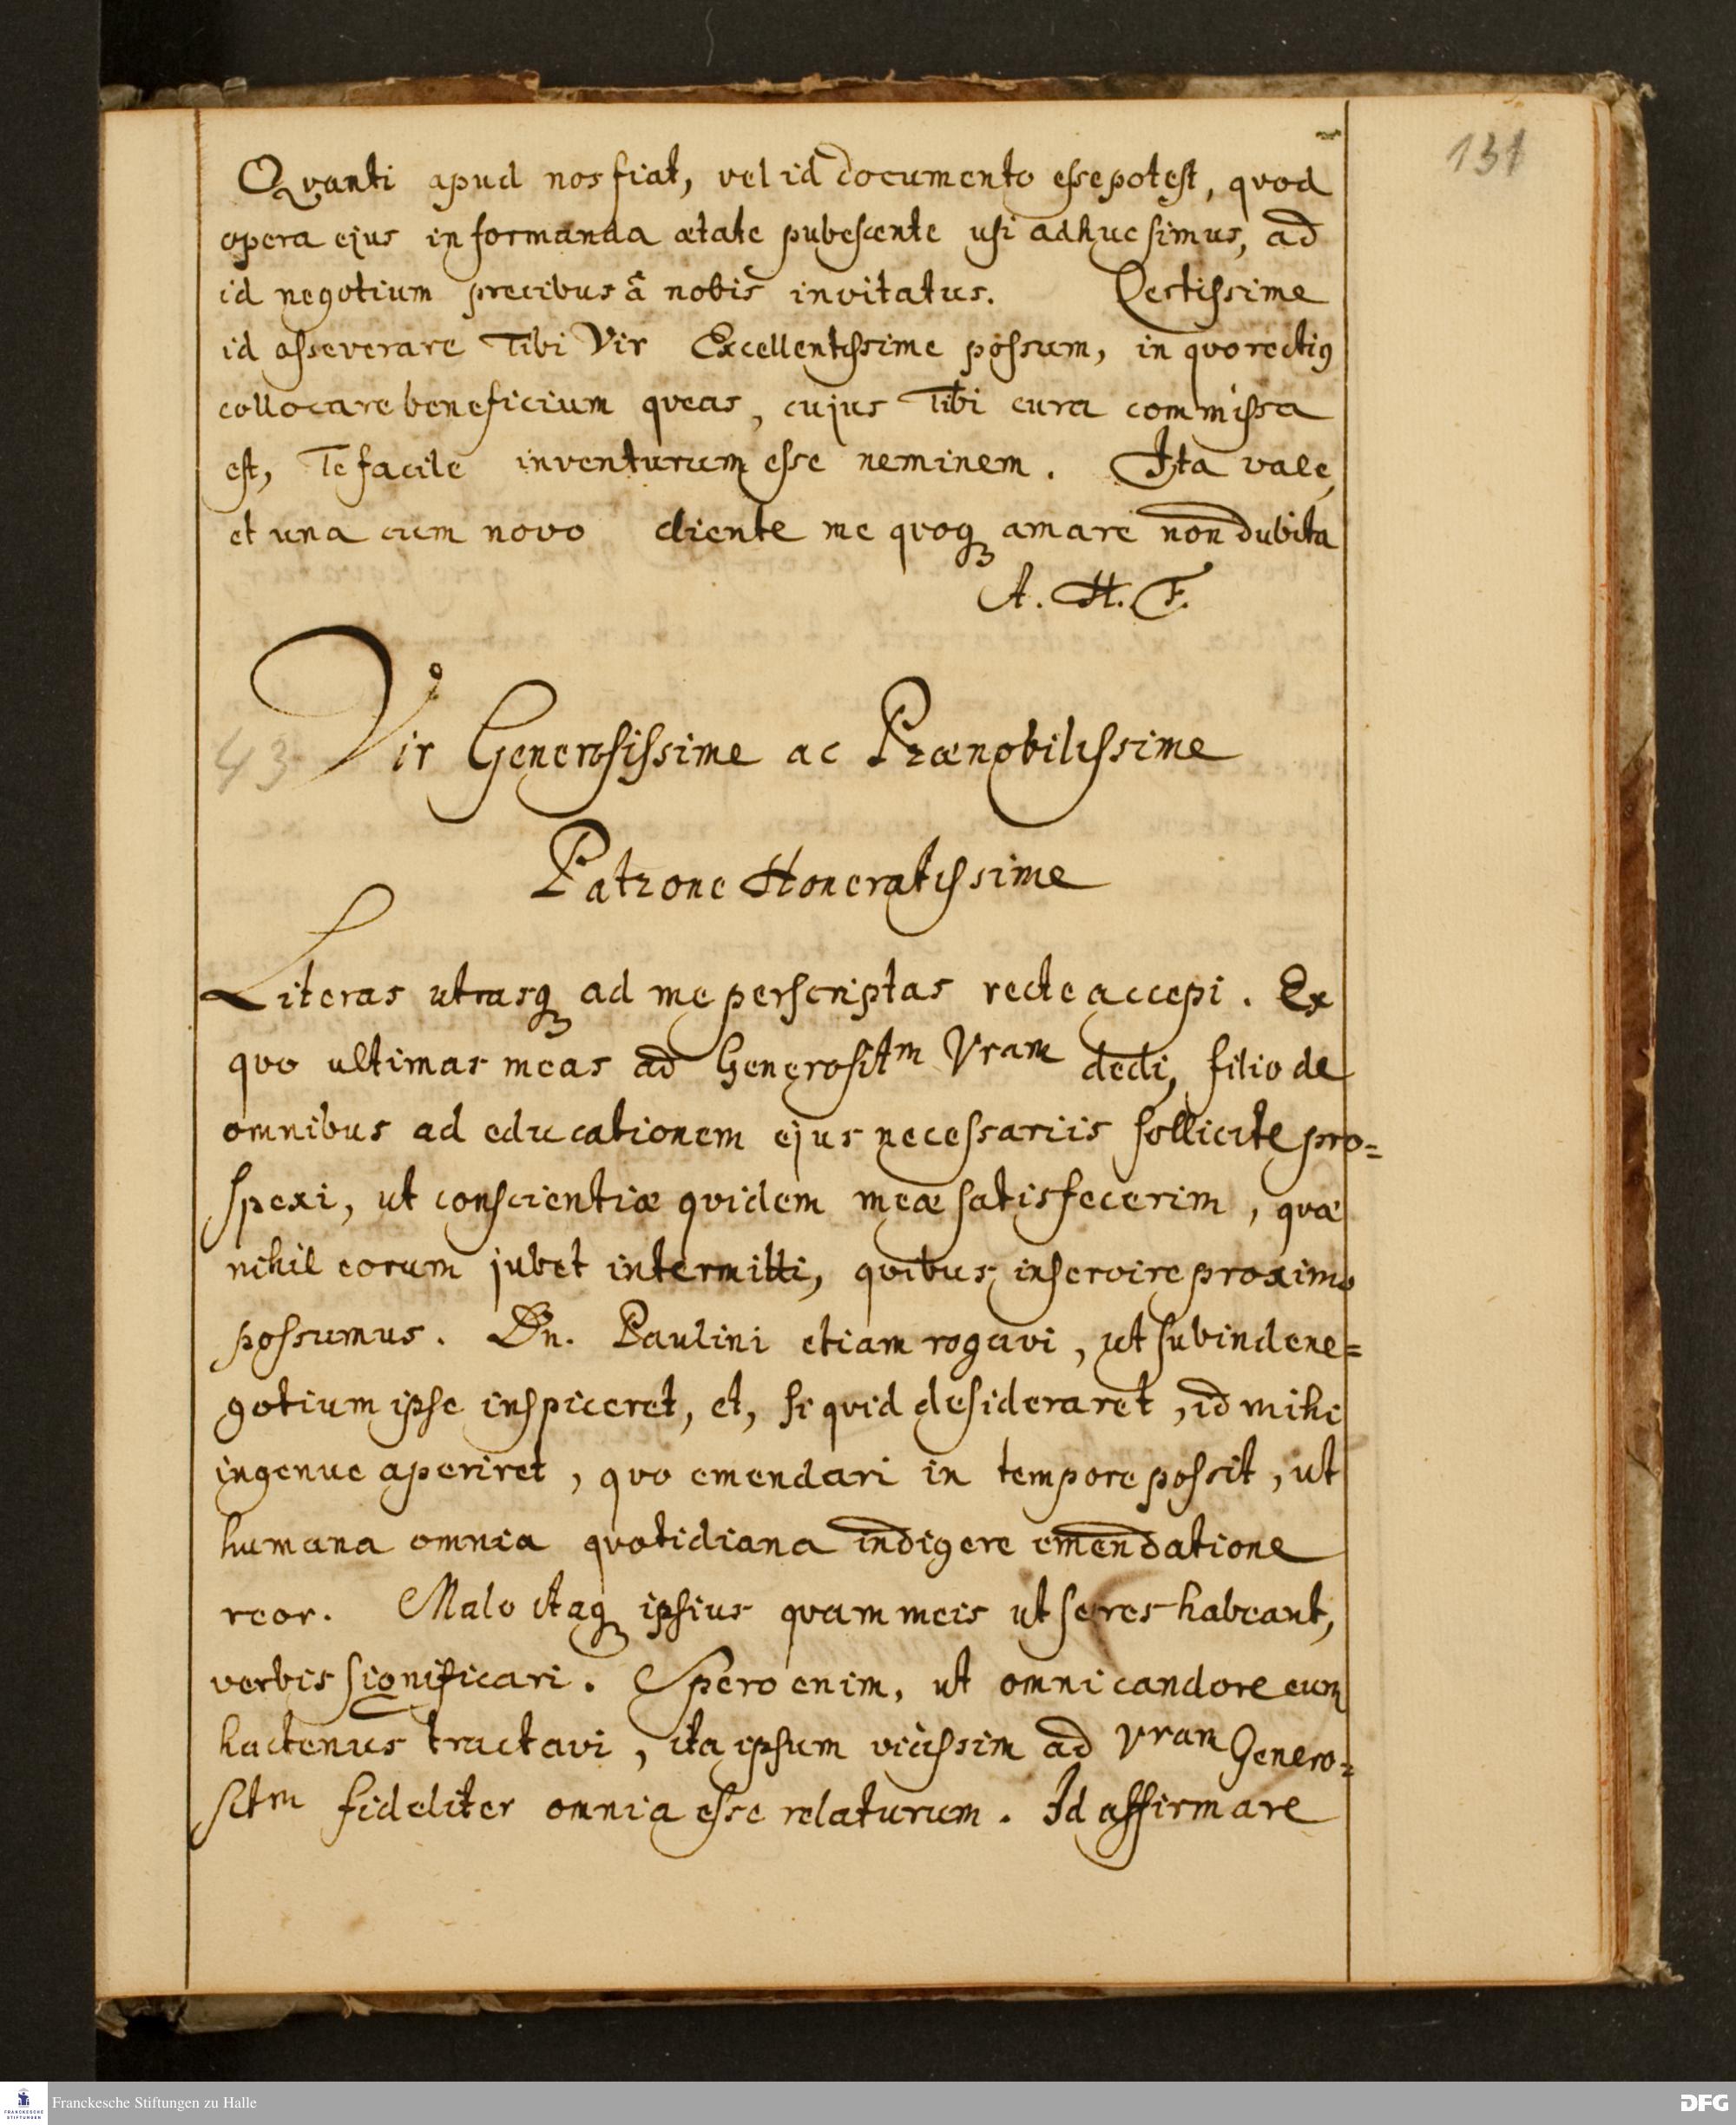 131
Qvanti apud nos fiat, vel id documento esse potest, qvod
opera ejus in formanda ætate pubescente usi adhuc simus, ad
id negotium precibus â nobis invitatus. Certissime
id asseverare Tibi Vir Excellentissime possum, in qvo rectig
collocare beneficium qveas, cujus Tibi cura commissa
est, Te facile inventurum esse neminem. Ita vale,
et una cum novo cliente me qvoq amare non dubita
A. H. F.
43 Vir Generosissime ac Prænobilissime
Patrone Honoratissime
Literas utrasq ad me perscriptas recte accepi. Ex
qvo ultimas meas ad Generositm Vram dedi, filio de
omnibus ad educationem ejus necessariis sollicite pro=
spexi, ut conscientiæ qvidem meæ satisfecerim, qvæ
nihil eorum jubet intermitti, qvibus inservire proximo
possumus. Dn. Paulini etiam rogavi, ut subinde ne=
gotium ipse inspiceret, et, si qvid desideraret, id mihi
ingenue aperiret, qvo emendari in tempore possit, ut
humana omnia qvotidiana indigere emendatione
reor. Malo itaq ipsius qvam meis ut se res habeant,
verbis significari. Spero enim, ut omni candore eum
hactenus tractavi, ita ipsum vicissim ad Vram Genero=
sitm fideliter omnia esse relaturum. Id affirmare
Franckesche Stiftungen zu Halle
FRANCKESCHE
STIFTUNGEN
DFG